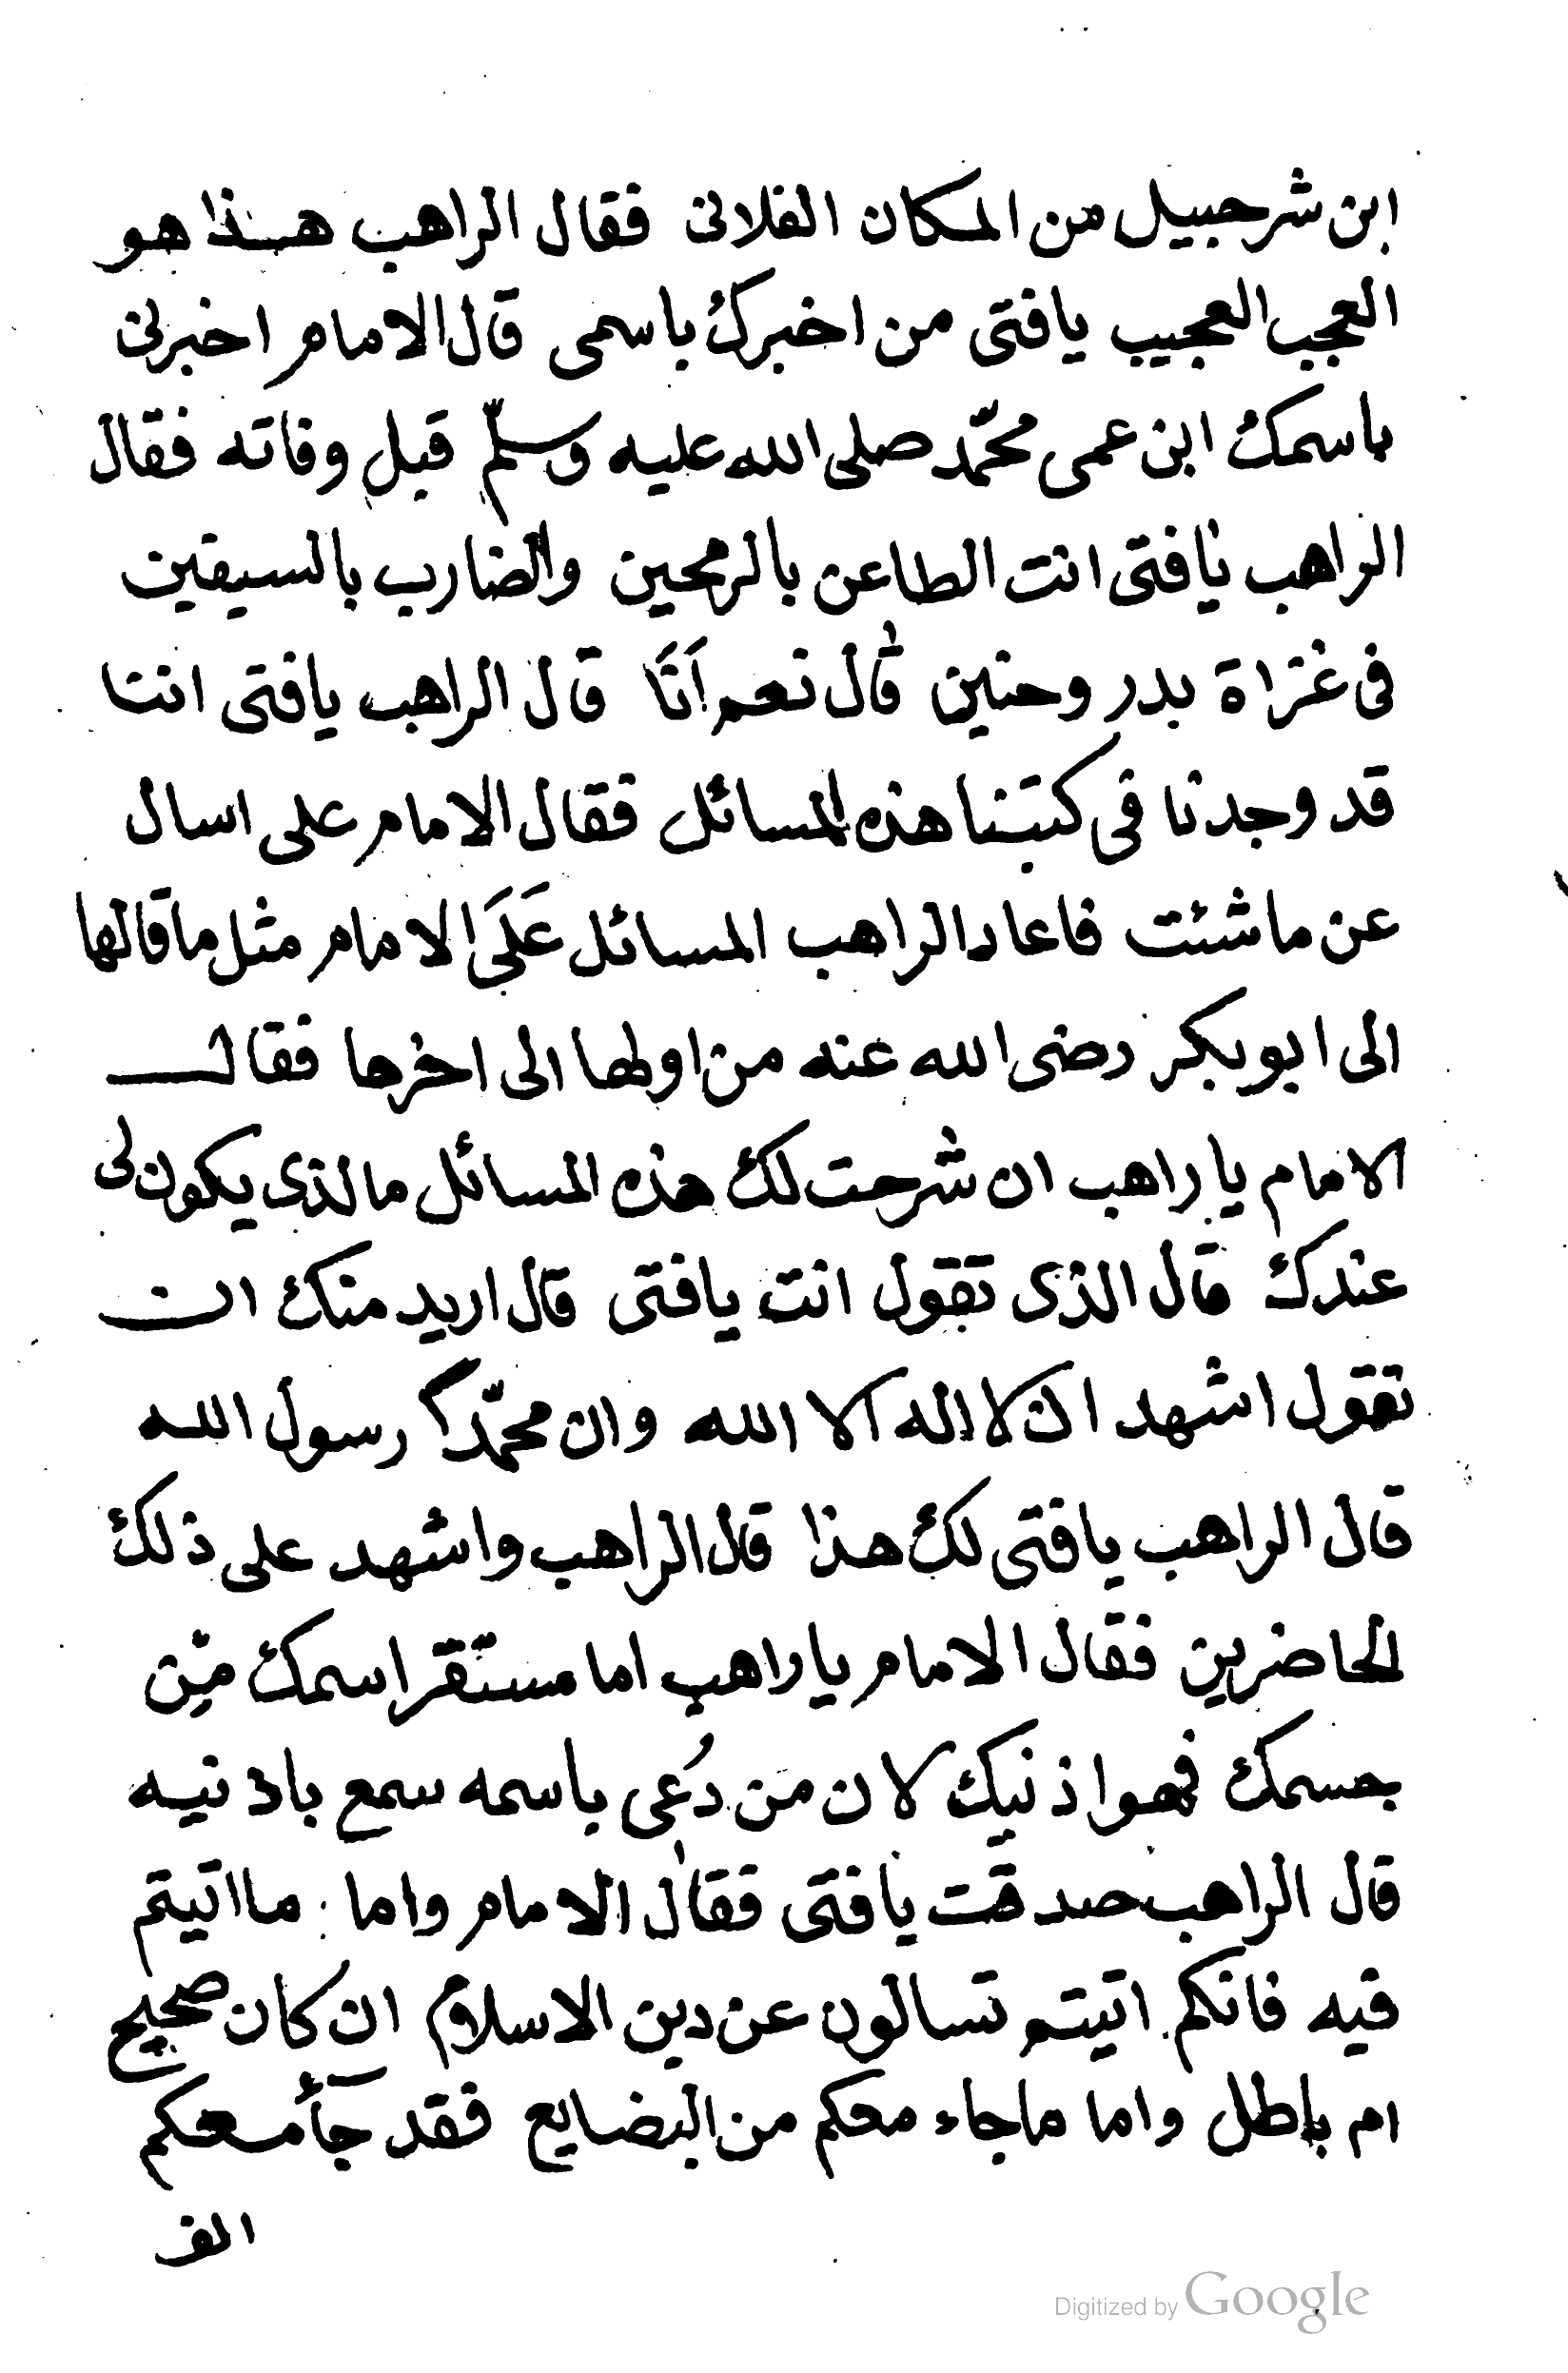 ابن شرحبيل من المكان الفلانى فقال الراهب هذا هو
العجب العجيب يافتى من اخبرك باسمى قال الامام اخبرنى
باسمك ابن عمى محمّد صلى الله عليه وسلّم قبل وفاته فقال
الراهب يافتى انت الطاعن بالرمحين والضارب بالسيفين
فى غزاة بدر وحنين قال نعم اَنَا قال الراهب يافتى اننا
قد وجدنا فى كتبنا هذه المسائل فقال الامام على اسال
عن ماشئت فاعاد الراهب المسائل عَلَى الامام مثل ماقالها
الى ابو بكر رضى الله عنه من اولها الى اخرها فقال
الامام يا راهب ان شرحت لك هذه المسائل مالذى يكون لى
عندك قال الذى تقول انت يافتى قال اريد منك ان
تقول اشهد ان لا اله الا الله وان محمّدًا رسول الله
قال الراهب يافتى لك هذا قال الراهب واشهد على ذلك
الحاضرين فقال الامام يا راهب اما مستقر اسمك من
جسمك فهو اذنيك لان من دُعى باسمه سمع باذنيه
قال الراهب صدقت يافتى فقال الامام واما ما اتيتم
فيه فانكم اتيتم تسالون عن دين الاسلام ان كان صحيح
ام باطل واما ماجاء معكم من البضايع فقد جآ معكم
الف
Digitized by Google